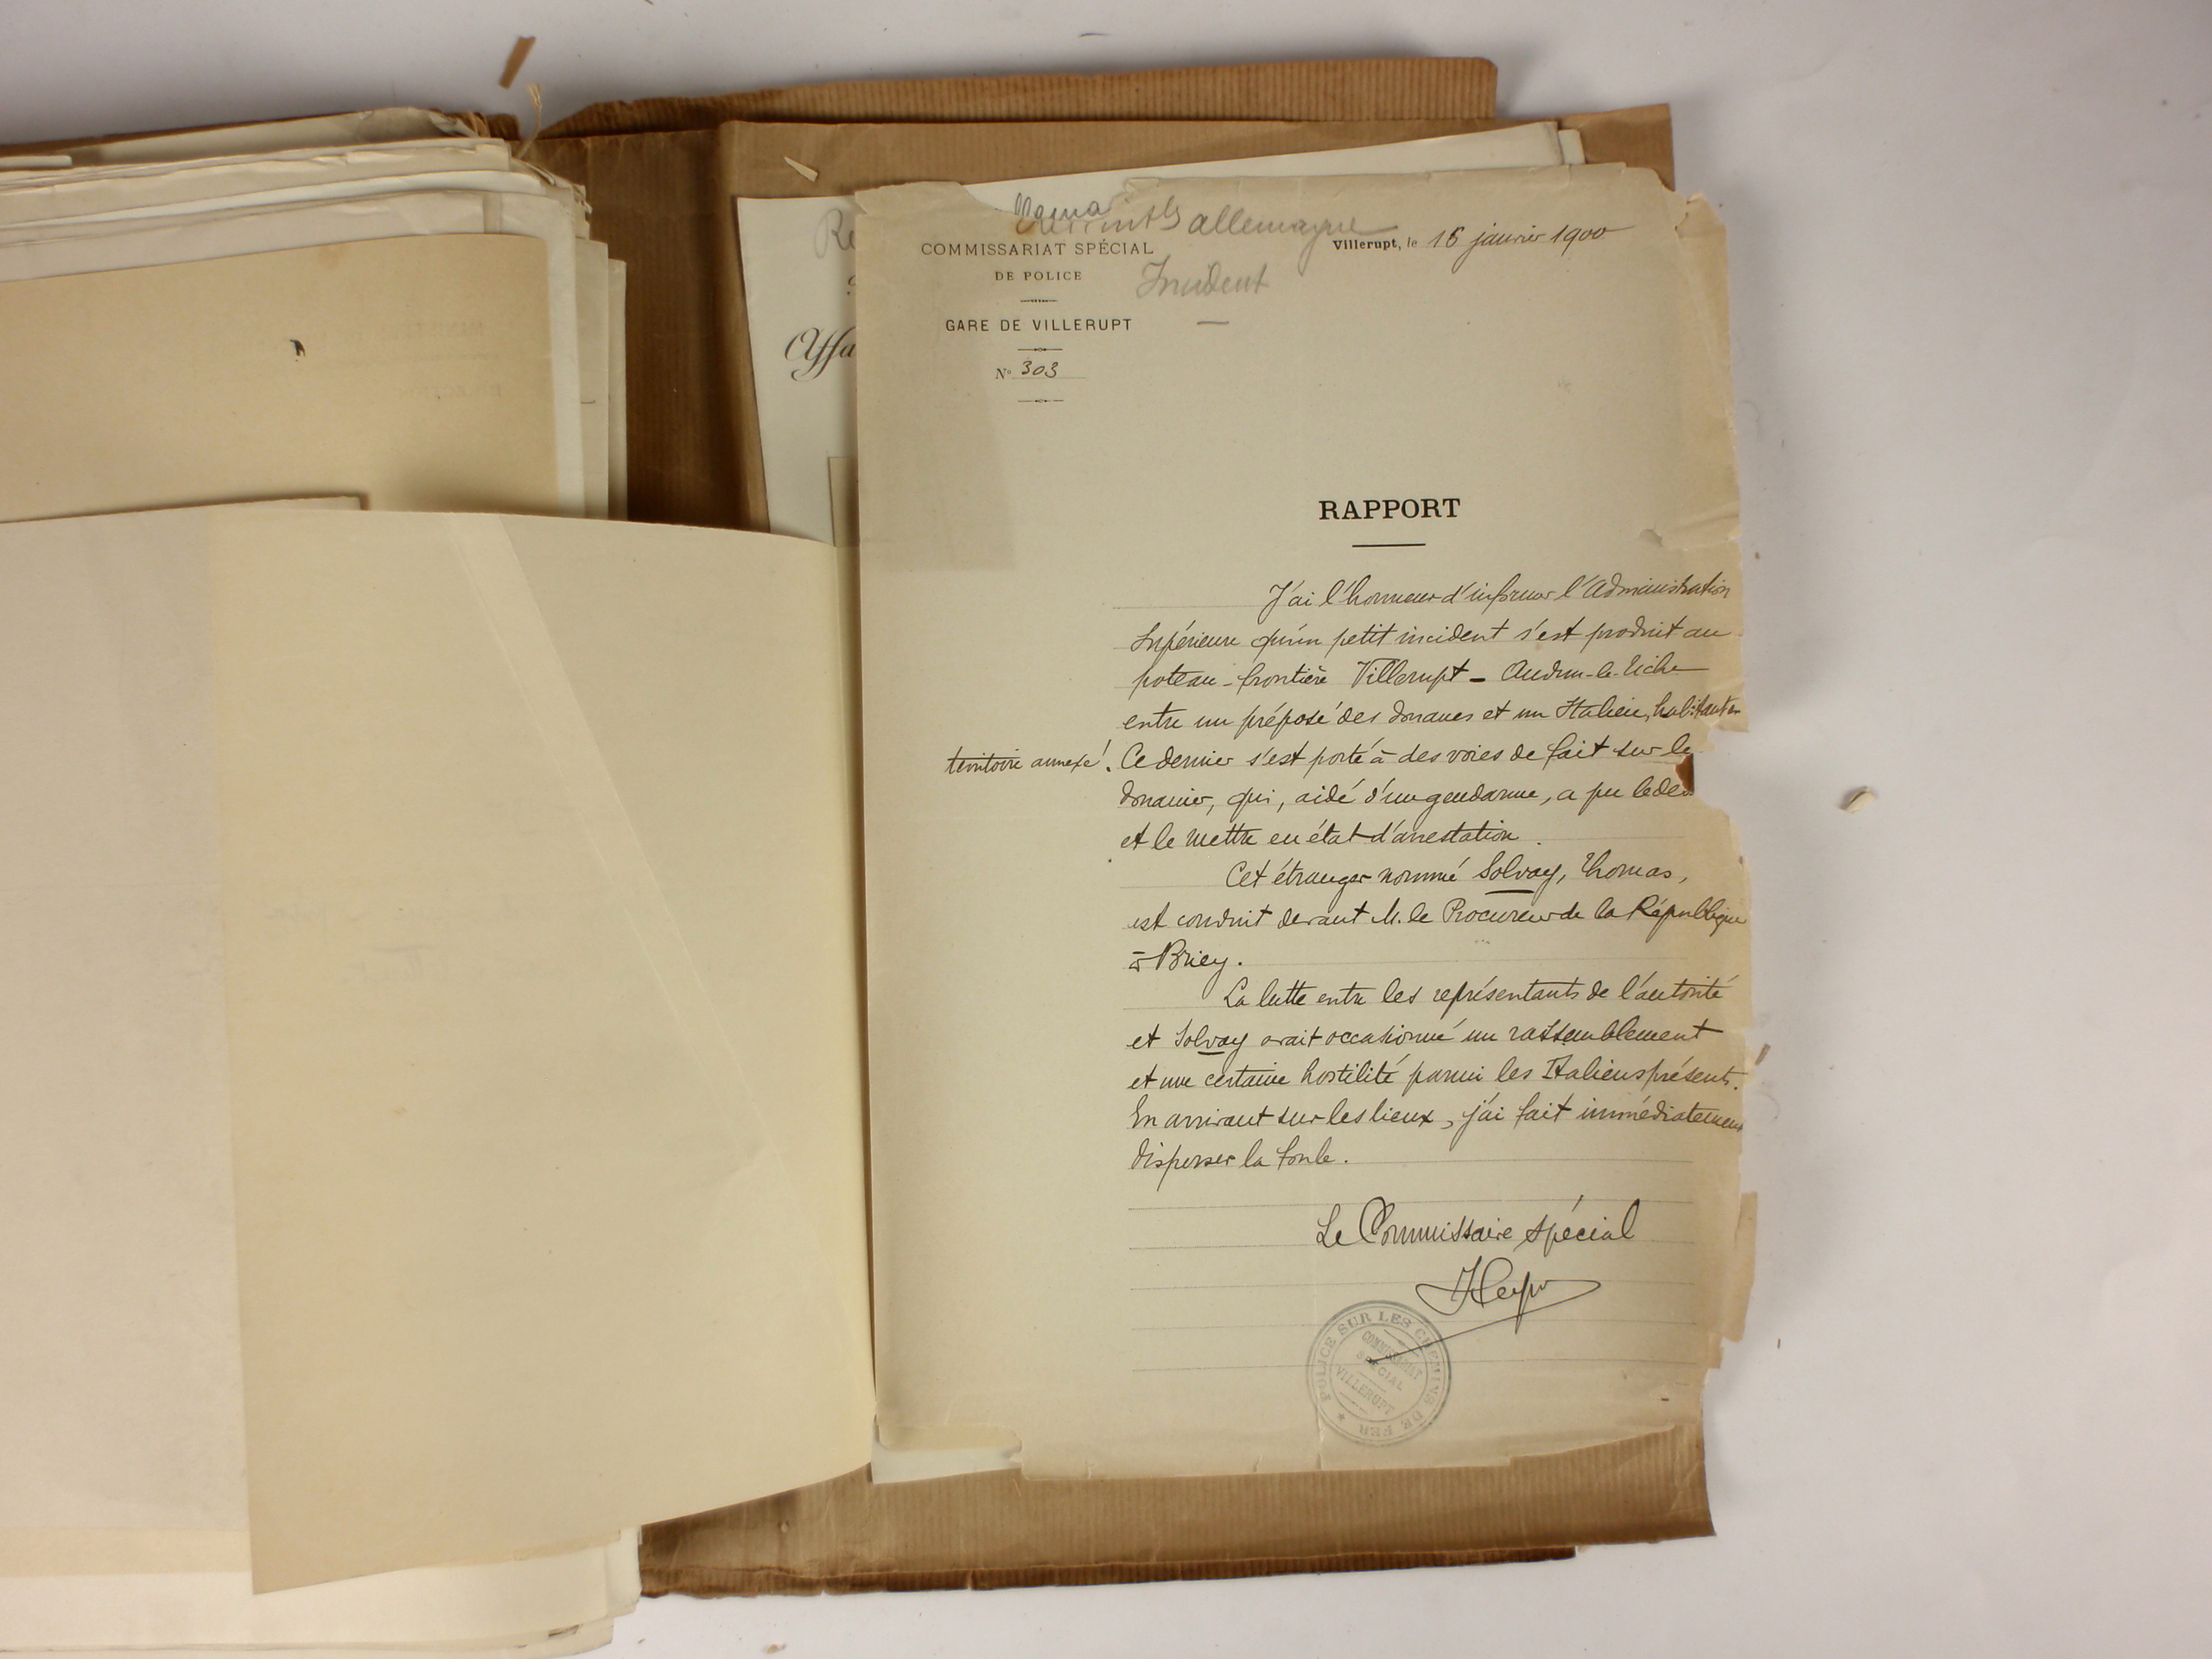 allemagne
COMMISSARIAT SPÉCIAL
DE POLICE
Incident
GARE DE VILLERUPT
N° 303
Villerupt, le 16 janvier 1900
RAPPORT
J'ai l'honneur d'informer l'Administration
Supérieure qu'un petit incident s'est produit au
poteau-frontière Villerupt - Audun-le-Tiche
entre un préposé des douanes et un Italien, habitant en
territoire annexé. Ce dernier s'est porté à des voies de fait sur le
douanier, qui, aidé d'un gendarme, a pu le
et le mettre en état d'arrestation.
Cet étranger nommé Solvay, Thomas,
est conduit devant M. le Procureur de la République
à Briey.
La lutte entre les représentants de l'autorité
et Solvay avait occasionné un rassemblement
et une certaine hostilité parmi les Italiens présents.
En arrivant sur les lieux, j'ai fait immédiatement
disperser la foule.
Le Commissaire spécial
POLICE SUR LES CHEMINS DE FER
COMMISSARIAT
SPÉCIAL
VILLERUPT